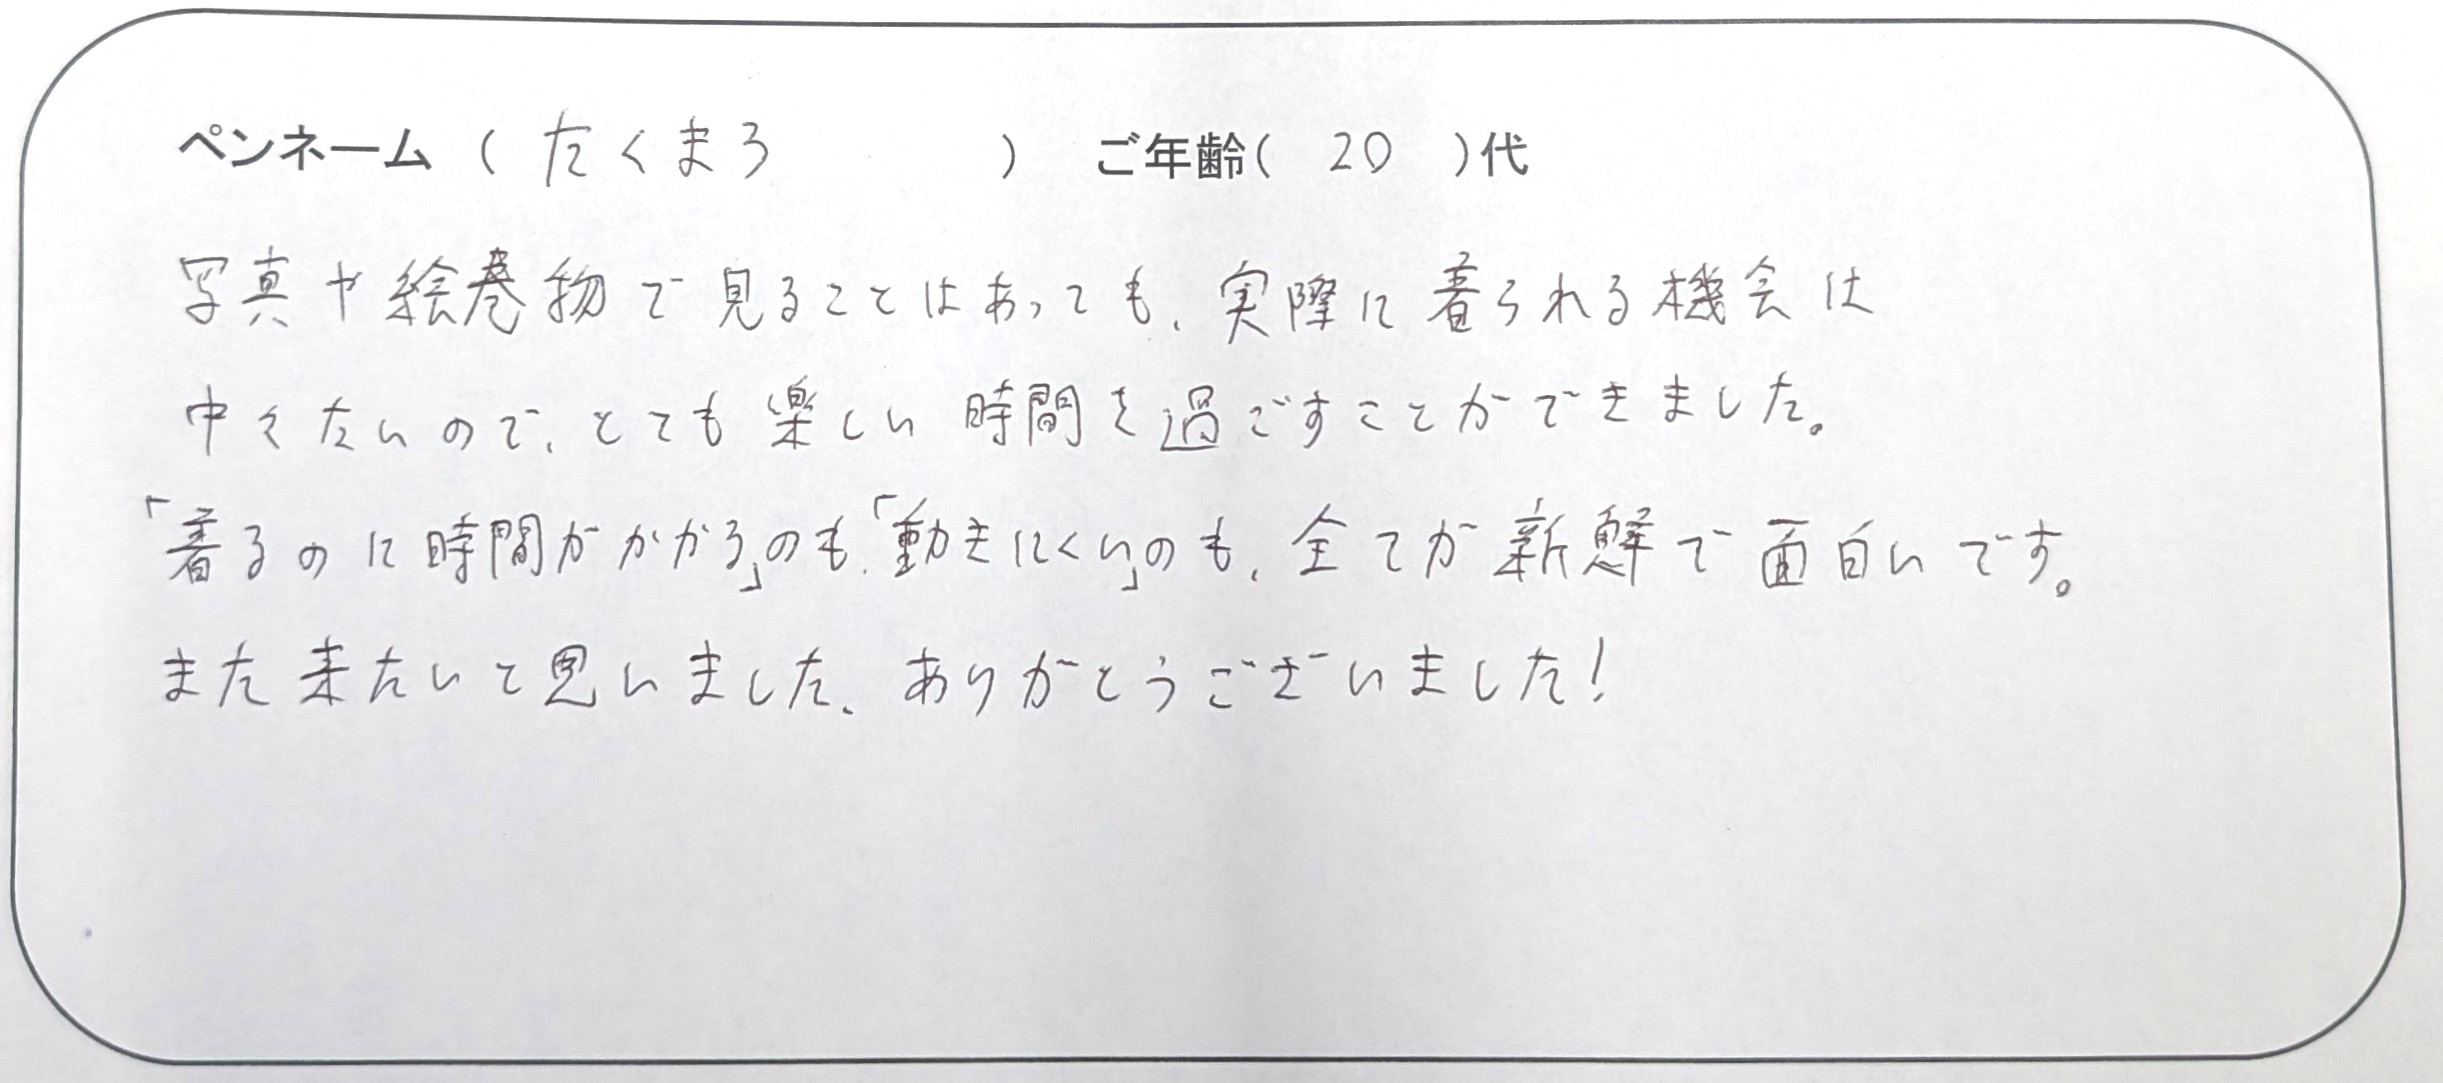 ペンネーム ( たくまろ ) ご年齢( 20 )代
写真や絵巻物で見ることはあっても、実際に着られる機会は
中々ないので、とても楽しい時間を過ごすことができました。
「着るのに時間がかかる」のも、「動きにくい」のも、全てが新鮮で面白いです。
また来たいと思いました。ありがとうございました!